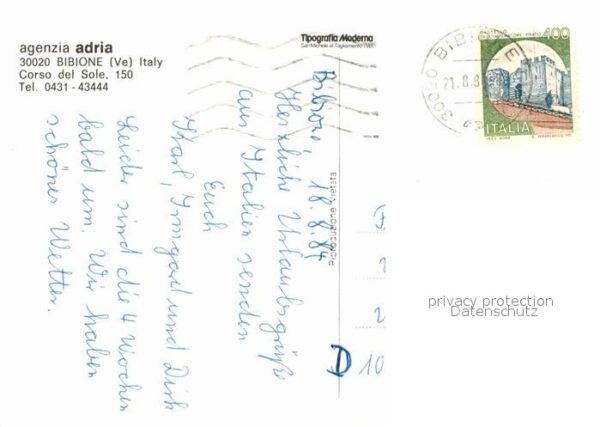 agenzia adria
30020 BIBIONE (Ve) Italy
Corso del Sole, 150
Tel. 0431 - 43444
Tipografia Moderna
San Michele al Tagliamento
Riproduzione Vietata
Bibione, 18.8.84
Herzliche Urlaubsgrüße
aus Italien senden
Euch
Karl, Irmgard und Dirk
Leider sind die 4 Wochen
bald um. Wir haben
schönes Wetter.
D 10
30020 BIBIONE
21.8.8
400
ITALIA
privacy protection
Datenschutz